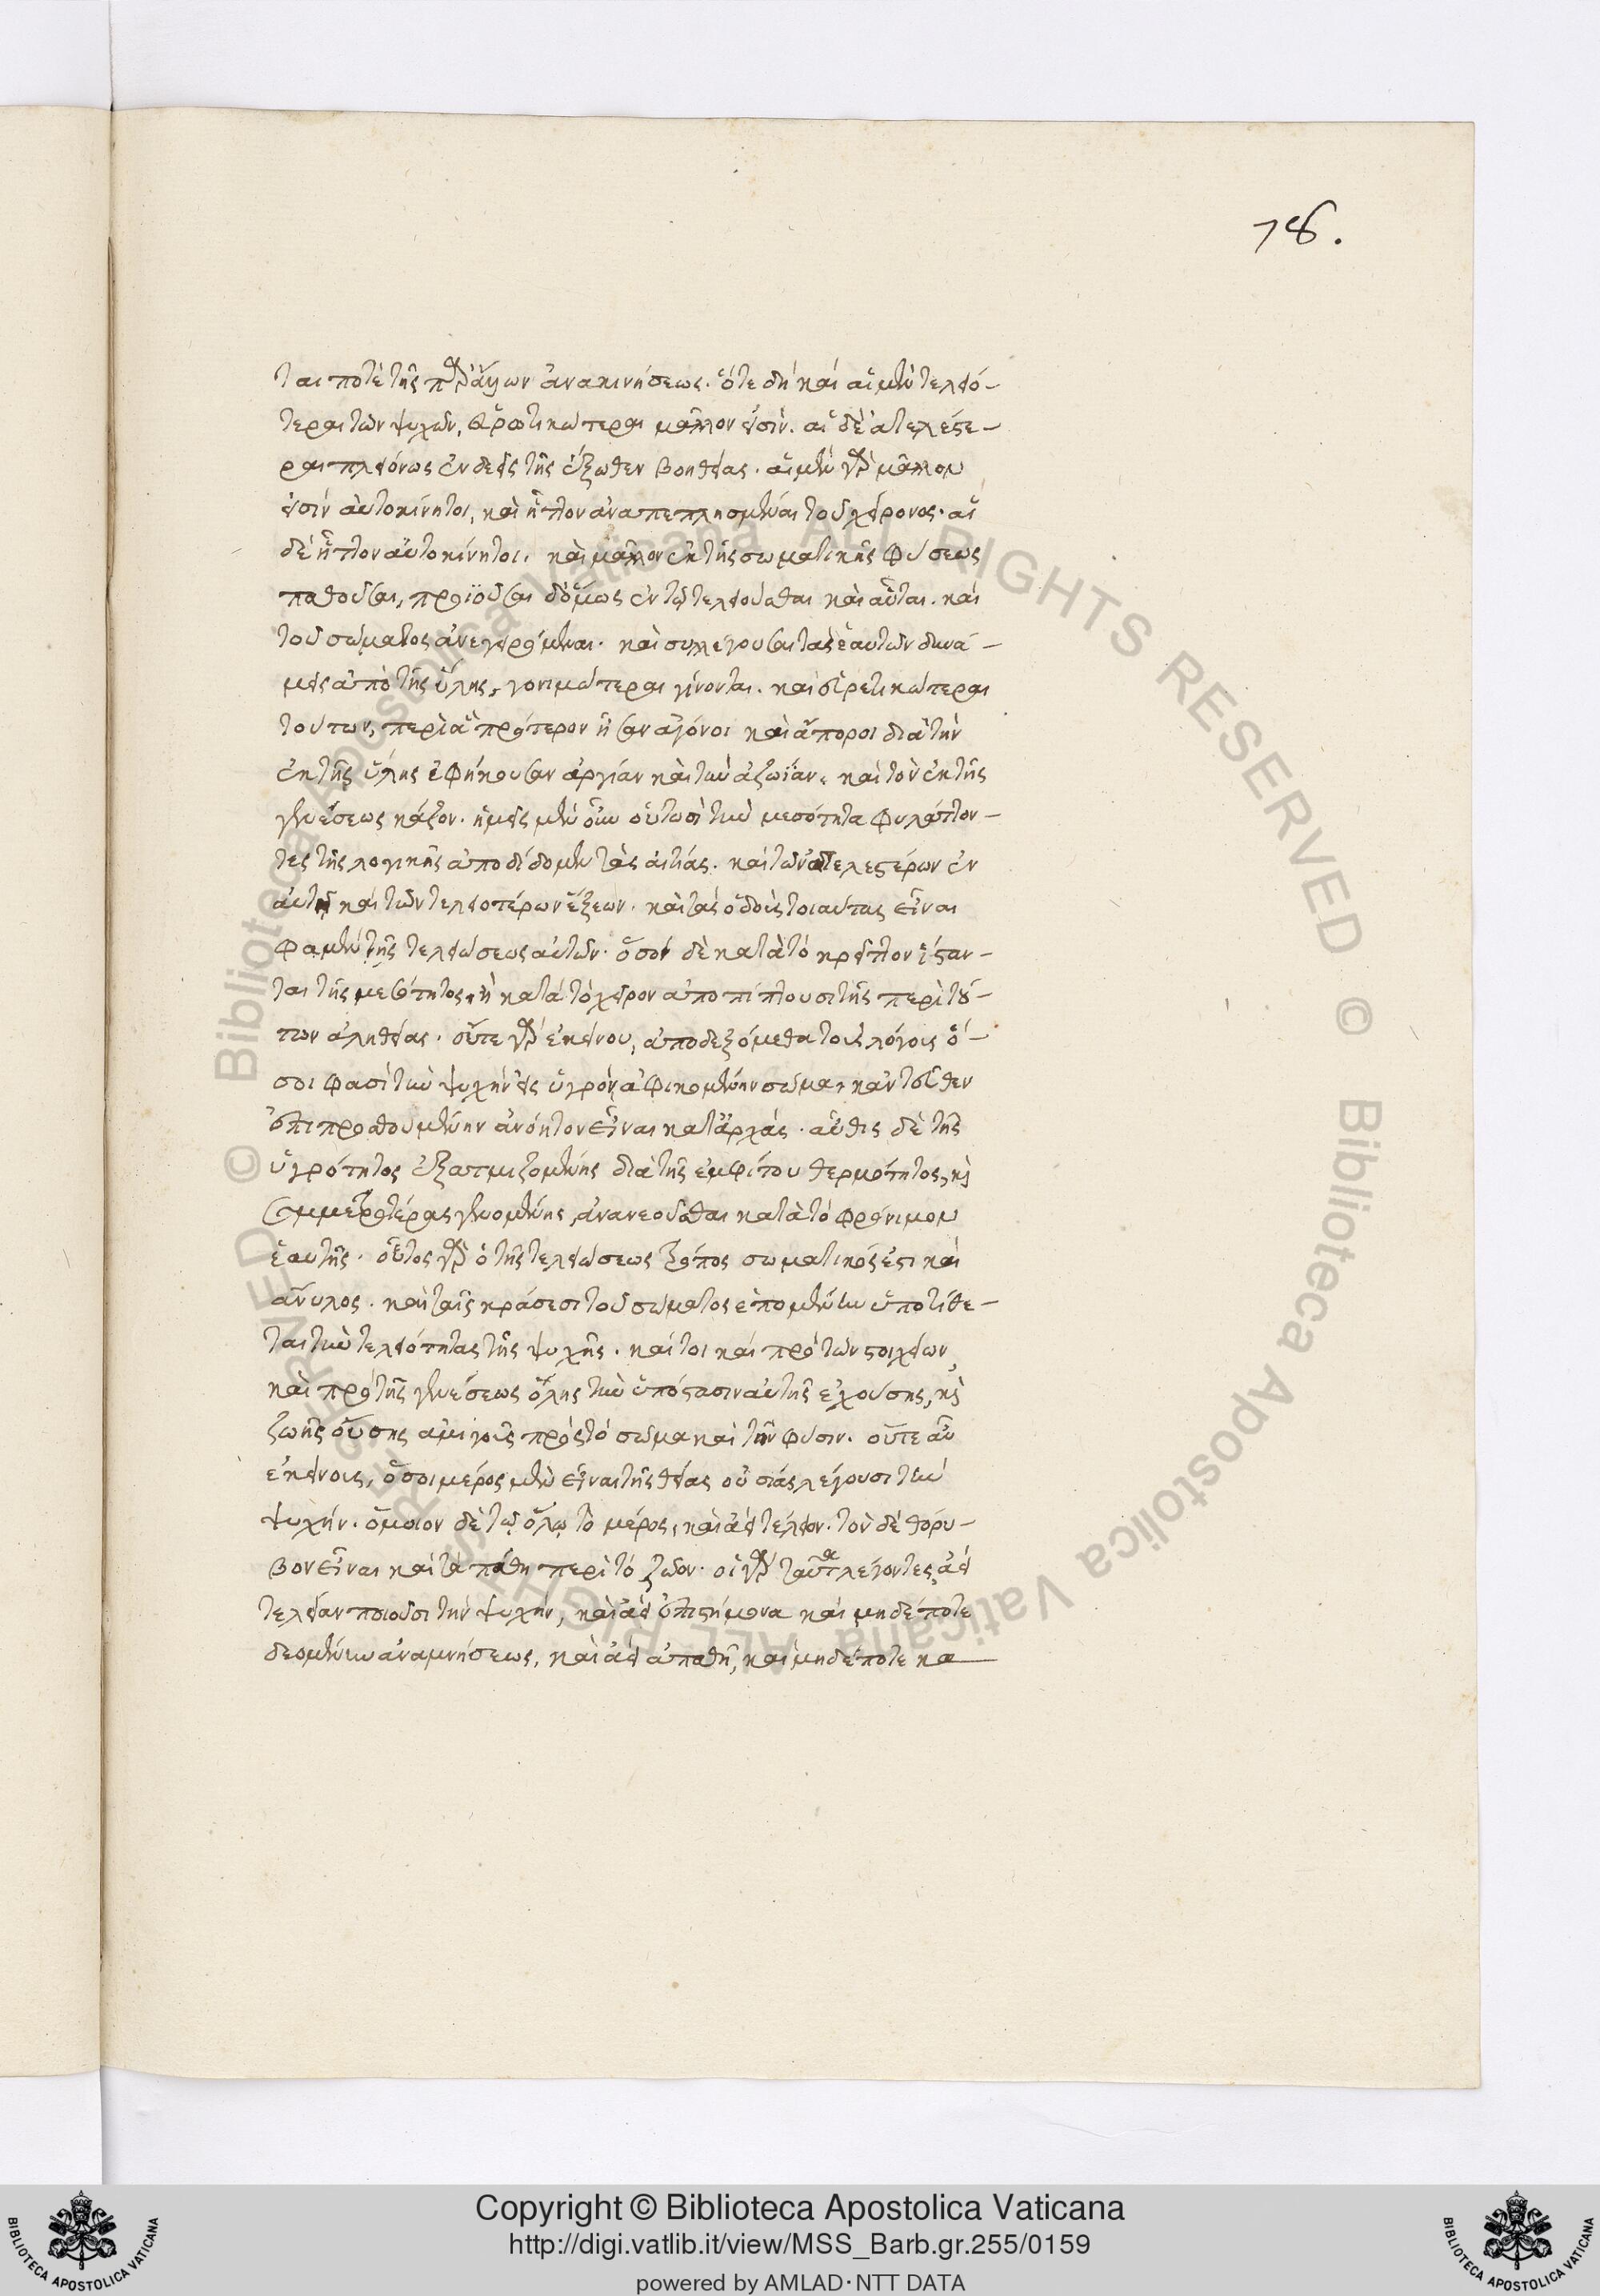 78.
ται ποτὲ τῆς παρ' ἄλλων ἀνακινήσεως. ὅτε δὴ καὶ αἱ μὲν τελειό-
τεραι τῶν ψυχῶν, εὑρετικώτεραι μᾶλλον εἰσίν. αἱ δὲ ἀτελέστε-
ραι πλειόνως ἐνδεεῖς τῆς ἔξωθεν βοηθείας. αἱ μὲν γὰρ μᾶλλον
εἰσὶν αὐτοκίνητοι, καὶ ἧττον ἀναπεπλησμέναι τοῦ χείρονος. αἱ
δὲ ἧττον αὐτοκίνητοι. καὶ μᾶλλον ἐκ τῆς σωματικῆς φύσεως
παθοῦσαι, προϊοῦσαι δ' ὅμως ἐν τῷ τελειοῦσθαι καὶ αὗται. καὶ
τοῦ σώματος ἀνεγειρόμεναι. καὶ συλλέγουσαι τὰς ἑαυτῶν δυνά-
μεις ἀπὸ τῆς ὕλης, γονιμώτεραι γίνονται. καὶ εὑρετικώτεραι
τούτων, περὶ ἃ πρότερον ἦσαν ἄγονοι καὶ ἄποροι διὰ τὴν
ἐκ τῆς ὕλης ἐφήκουσαν ἀργίαν καὶ τὴν ἀζωΐαν. καὶ τὸν ἐκ τῆς
γενέσεως κάρον. ἡμεῖς μὲν οὖν οὑτωσὶ τὴν μεσότητα φυλάττον-
τες τῆς λογικῆς ἀποδίδομεν τὰς αἰτίας. καὶ τῶν ἀτελεστέρων ἐν
αὐτῇ καὶ τῶν τελειοτέρων ἕξεων. καὶ τὰς ὁδοὺς τοιαύτας εἶναι
φαμὲν τῆς τελειώσεως αὐτῶν. ὅσοι δὲ κατὰ τὸ κρεῖττον ἵσταν-
ται τῆς μεσότητος, ἢ κατὰ τὸ χεῖρον ἀποπίπτουσι τῆς περὶ τού-
των ἀληθείας. οὔτε γὰρ ἐκείνου, ἀποδεξόμεθα τοὺς λόγους ὅ-
σοι φασὶ τὴν ψυχὴν εἰς ὑγρὸν ἀφικομένην σῶμα, κἀντεῦθεν
ἐπιπροσθουμένην ἀνόητον εἶναι κατ' ἀρχάς. αὖθις δὲ τῆς
ὑγρότητος ἐξατμιζομένης διὰ τῆς ἐμφύτου θερμότητος, καὶ
συμμετροτέρας γενομένης, ἀνανεοῦσθαι κατὰ τὸ φρόνιμον
ἑαυτῆς. οὗτος γὰρ ὁ τῆς τελειώσεως τρόπος σωματικός ἐστι καὶ
ἄνυλος. καὶ ταῖς κράσεσι τοῦ σώματος ἑπομένην ὑποτίθε-
ται τὴν τελειότητας τῆς ψυχῆς. καίτοι καὶ πρὸ τῶν στοιχείων,
καὶ πρὸ τῆς γενέσεως ὅλης τὴν ὑπόστασιν αὐτῆς ἐχούσης, καὶ
ζωῆς οὔσης ἀμιγοῦς πρὸς τὸ σῶμα καὶ τὴν φύσιν. οὔτε αὖ
ἐκείνοις, ὅσοι μέρος μὲν εἶναι τῆς θείας οὐσίας λέγουσι τὴν
ψυχήν. ὅμοιον δὲ τῷ ὅλῳ τὸ μέρος, καὶ ἀεὶ τέλειον. τὸν δὲ θόρυ-
βον εἶναι καὶ τὰ πάθη περὶ τὸ ζῶον. οἱ γὰρ ταῦτα λέγοντες, ἀεὶ
τελείαν ποιοῦσι τὴν ψυχήν, καὶ ἀεὶ ἐπιστήμονα καὶ μηδέποτε
δεομένην ἀναμνήσεως, καὶ ἀεὶ ἀπαθῆ, καὶ μηδέποτε κα
Copyright © Biblioteca Apostolica Vaticana
http://digi.vatlib.it/view/MSS_Barb.gr.255/0159
powered by AMLAD·NTT DATA